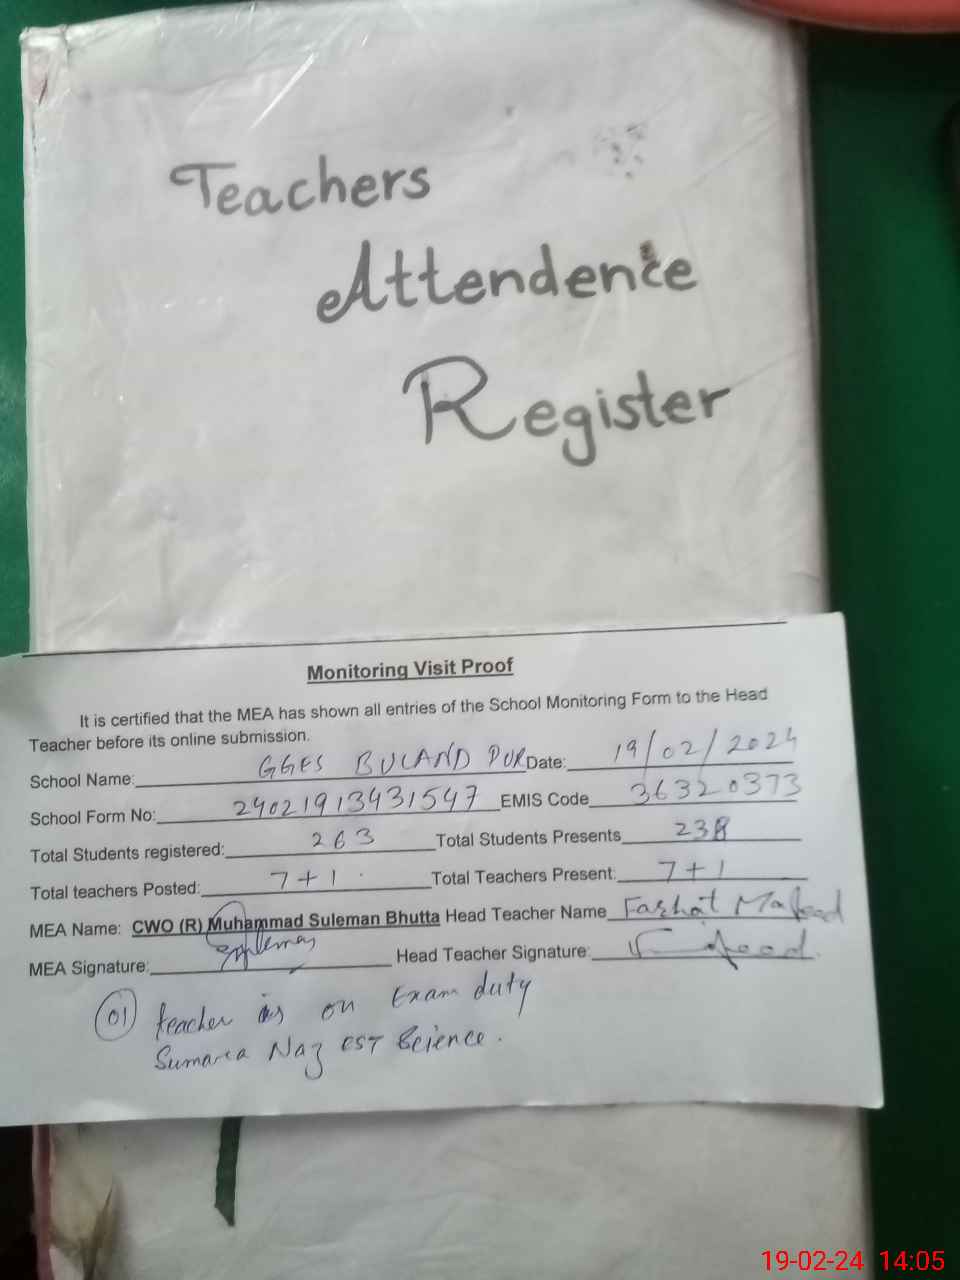 Teachers
Attendence
Register
Monitoring Visit Proof
It is certified that the MEA has shown all entries of the School Monitoring Form to the Head
Teacher before its online submission.
School Name: GGES BULAND PUR Date: 19/02/2024
School Form No: 24021913431547 EMIS Code 36320373
Total Students registered: 263 Total Students Presents 238
Total teachers Posted: 7+1 Total Teachers Present: 7+1
MEA Name: CWO (R) Muhammad Suleman Bhutta Head Teacher Name Farhat
MEA Signature: Head Teacher Signature:
01 teacher is on Exam duty
Sumaira Naz EST Science.
19-02-24 14:05